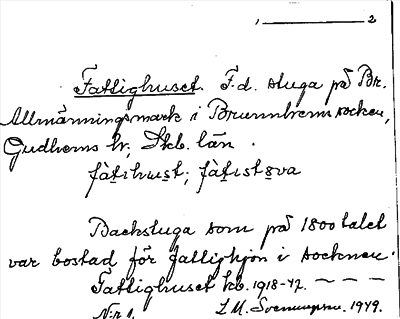 1 2
Fattighuset. F.d. stuga på Br.
Allmänningsmark i Brunnhem socken,
Gudhems hr, Skb. län.
fàtihust; fàtistova
Backstuga som på 1800talet
var bostad för fattighjon i socknen.
Fattighuset kb. 1918-47. — — —
N:r 1. L.M. 1949.